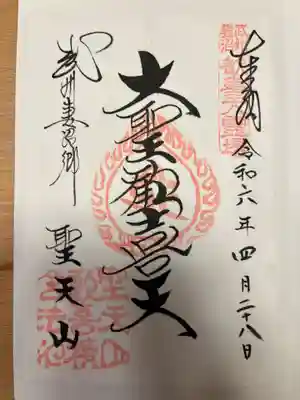 奉拝 令和六年四月二十八日
大聖歓喜天
武州妻沼郷 聖天山